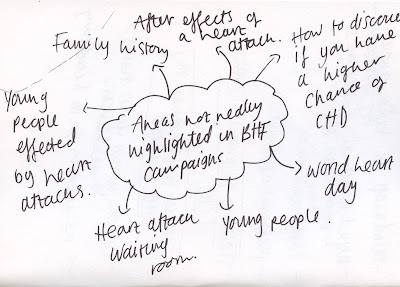 Areas not really
highlighted in BHF
campaigns
Family history
After effects
of
a heart
attack.
How to discover
if you have
a higher
chance of
CHD
world heart
day
Young people.
Heart attack
waiting
room.
Young
people
effected
by heart
attacks.